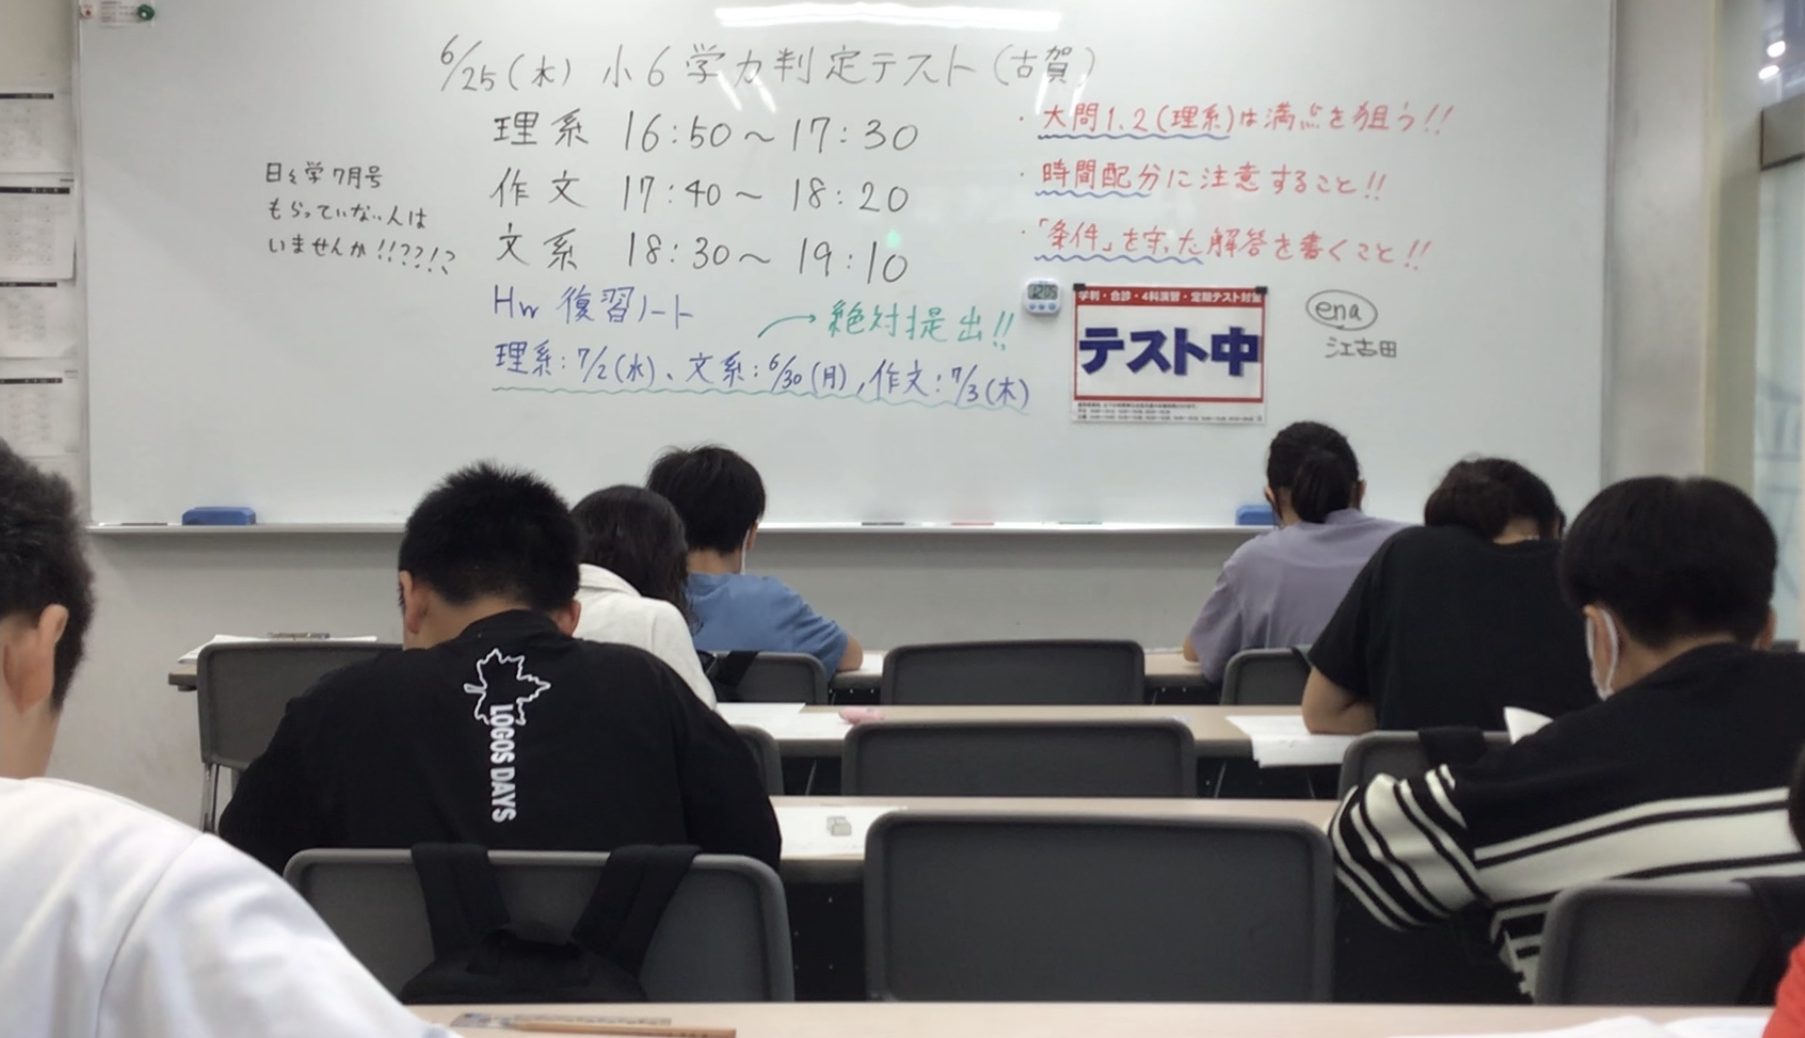 6/25(水) 小6学力判定テスト(古賀)
理系 16:50~17:30
作文 17:40~18:20
文系 18:30~19:10
Hw 復習ノート
→絶対提出!!
理系:7/2(水)、文系:6/30(月),作文:7/3(木)
日々学7月号
もらっていない人は
いませんか!!??!?
・大問1.2(理系)は満点を狙う!!
・時間配分に注意すること!!
・「条件」を守った解答を書くこと!!
学判・合診・4科演習・定期テスト対策
テスト中
ena
江古田
LOGOS DAYS